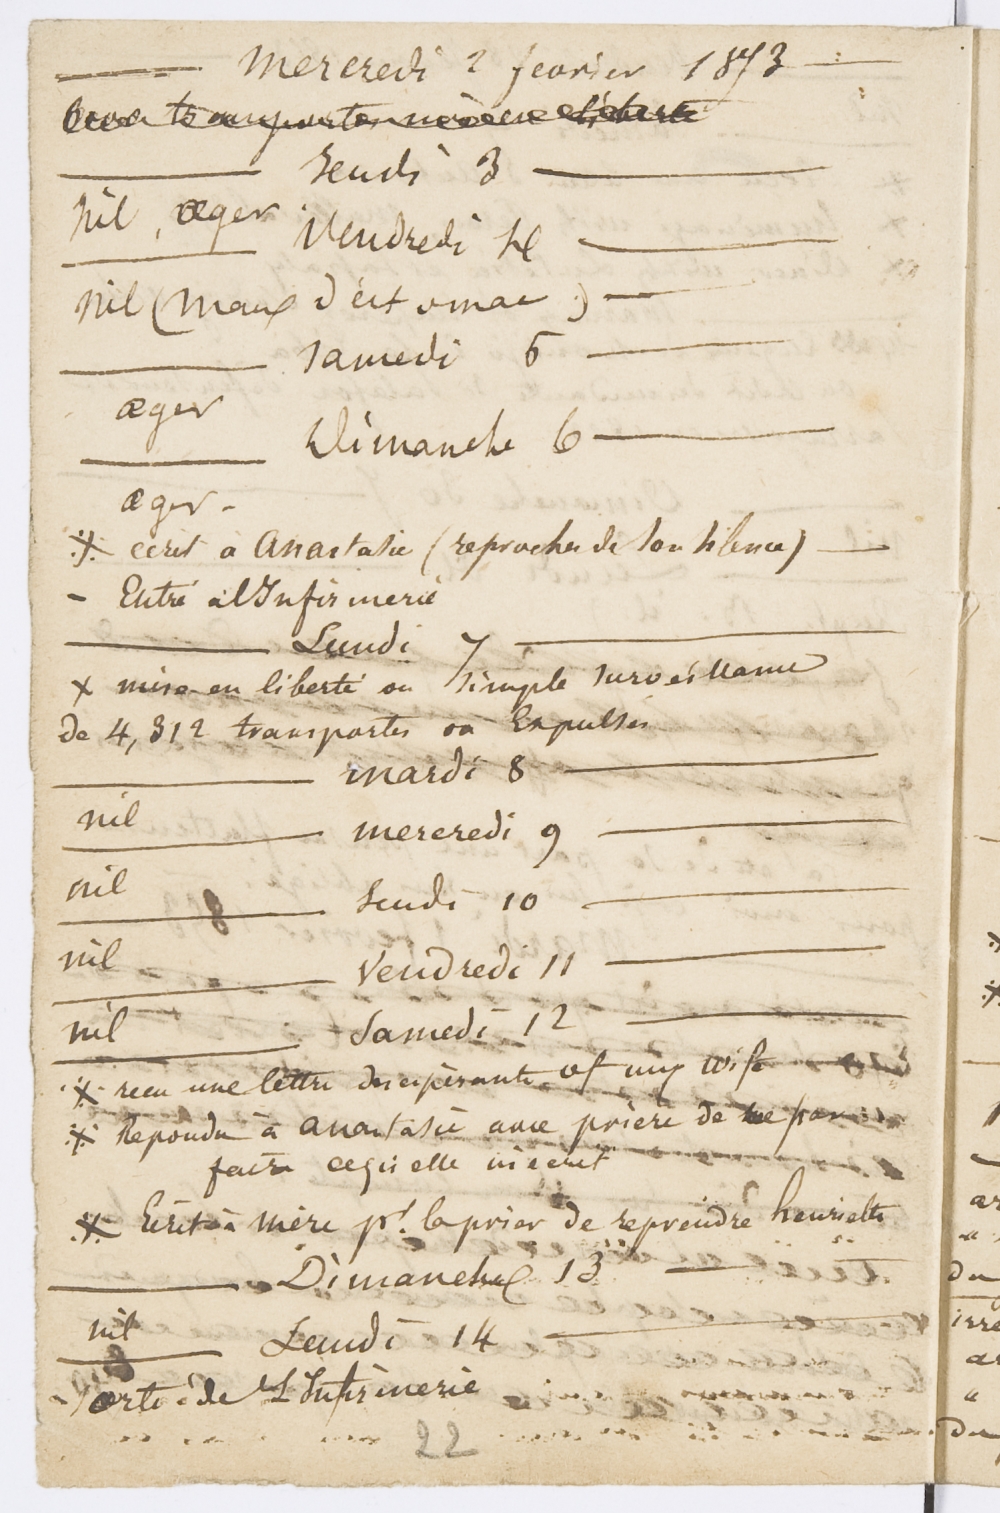 Mercredi 2 fevrier 1873
transportes mis en liberté
Jeudi 3
Nil, æger
Vendredi 4
Nil (Maux d'estomac)
Samedi 5
æger
Dimanche 6
æger -
※ ecrit à Anastasie (reproches de son silence)
- Entré à l'Infirmerie
Lundi 7
x mise en liberté ou simple surveillance
de 4,312 transportes ou Expulsés
mardi 8
nil
mercredi 9
nil
Jeudi 10
nil
Vendredi 11
nil
Samedi 12
※ recu une lettre desespérante of my wife
※ Repondu à anastasie avec prière de ne pas
faire ce qu'elle m'ecrit
※ Ecrit à mère pr. la prier de reprendre henriette
Dimanche 13
nil
Lundi 14
- Sorti de L'Infirmerie
22